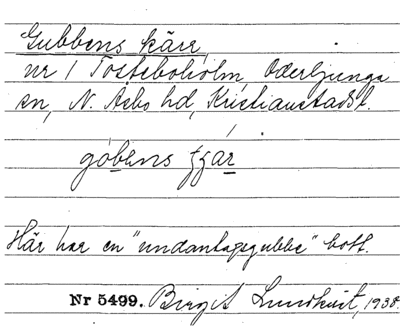 Gubbens kärr,
nr 1 Tosteboholm, Oderljunga
sn, N. Åsbo hd, Kristianstads l.
Här har en "undantagsgubbe" bott.
Nr 5499. Birgit Lundkvist, 1938.